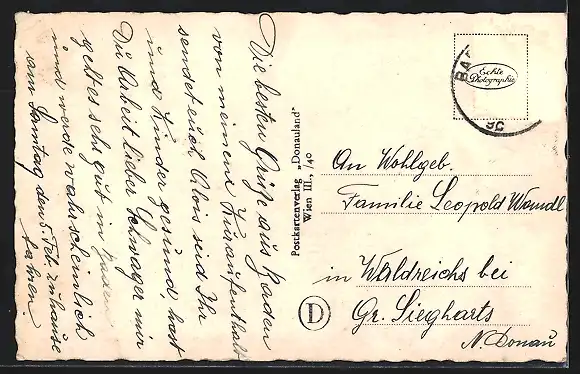 Die besten Grüße aus Baden
von meinem Kuraufenthalt
sendet euch Alois seid Ihr
und Kinder gesund, hast
Du Arbeit lieber Schwager mir
geht es sehr gut in Baden
und werde wahrscheinlich
am Samstag den 5. Feb. zuhause
Postkartenverlag „Donauland"
Wien III., /40
Echte
Photographie
BA
An Wohlgeb.
Familie Leopold
in Waldreichs bei
Gr. Siegharts
N. Donau
D